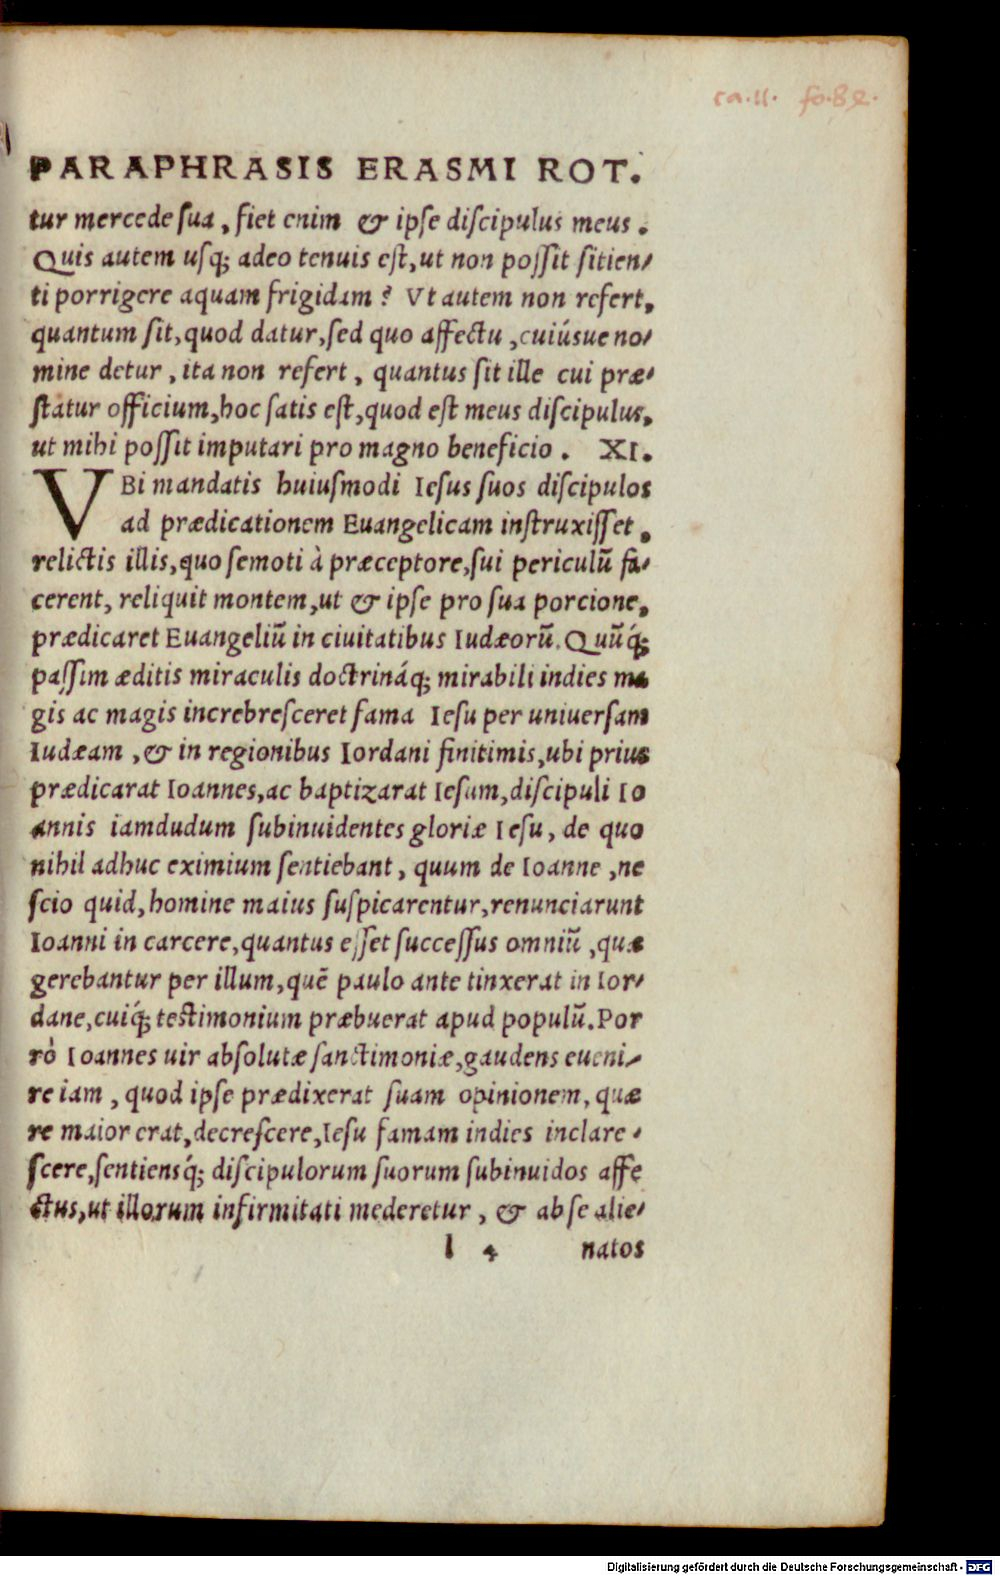 ca.11. fo.82.
PARAPHRASIS ERASMI ROT.
tur mercede sua, fiet enim & ipse discipulus meus.
Quis autem usq; adeo tenuis est, ut non possit sitien-
ti porrigere aquam frigidam? Vt autem non refert,
quantum sit, quod datur, sed quo affectu, cuiúsue no-
mine detur, ita non refert, quantus sit ille cui præ-
statur officium, hoc satis est, quod est meus discipulus,
ut mihi possit imputari pro magno beneficio. XI.
VBi mandatis huiusmodi Iesus suos discipulos
ad prædicationem Euangelicam instruxisset,
relictis illis, quo semoti à præceptore, sui periculũ fa-
cerent, reliquit montem, ut & ipse pro sua porcione,
prædicaret Euangeliũ in ciuitatibus Iudæorũ. Quũq́;
passim æditis miraculis doctrináq; mirabili indies ma
gis ac magis increbresceret fama Iesu per uniuersam
Iudæam, & in regionibus Iordani finitimis, ubi prius
prædicarat Ioannes, ac baptizarat Iesum, discipuli Io
annis iamdudum subinuidentes gloriæ Iesu, de quo
nihil adhuc eximium sentiebant, quum de Ioanne, ne
scio quid, homine maius suspicarentur, renunciarunt
Ioanni in carcere, quantus esset successus omniũ, quæ
gerebantur per illum, quẽ paulo ante tinxerat in Ior-
dane, cuiq́; testimonium præbuerat apud populũ. Por
rò Ioannes uir absolutæ sanctimoniæ, gaudens eueni-
re iam, quod ipse prædixerat suam opinionem, quæ
re maior erat, decrescere, Iesu famam indies inclare-
scere, sentiensq́; discipulorum suorum subinuidos affe
ctus, ut illorum infirmitati mederetur, & ab se alie-
l 4 natos
Digitalisierung gefördert durch die Deutsche Forschungsgemeinschaft - DFG